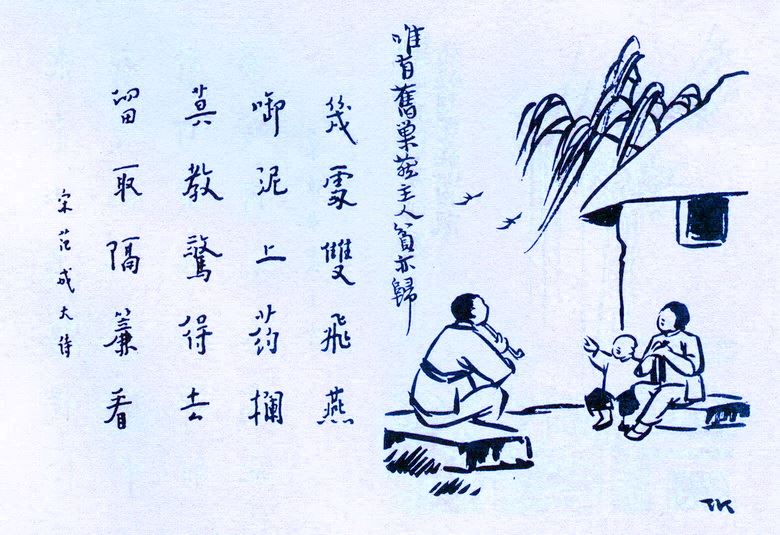 唯有舊巢燕主人貧亦歸
幾處雙飛燕
啣泥上葯欄
莫教驚得去
留取隔簾看
宋范成大詩
TK